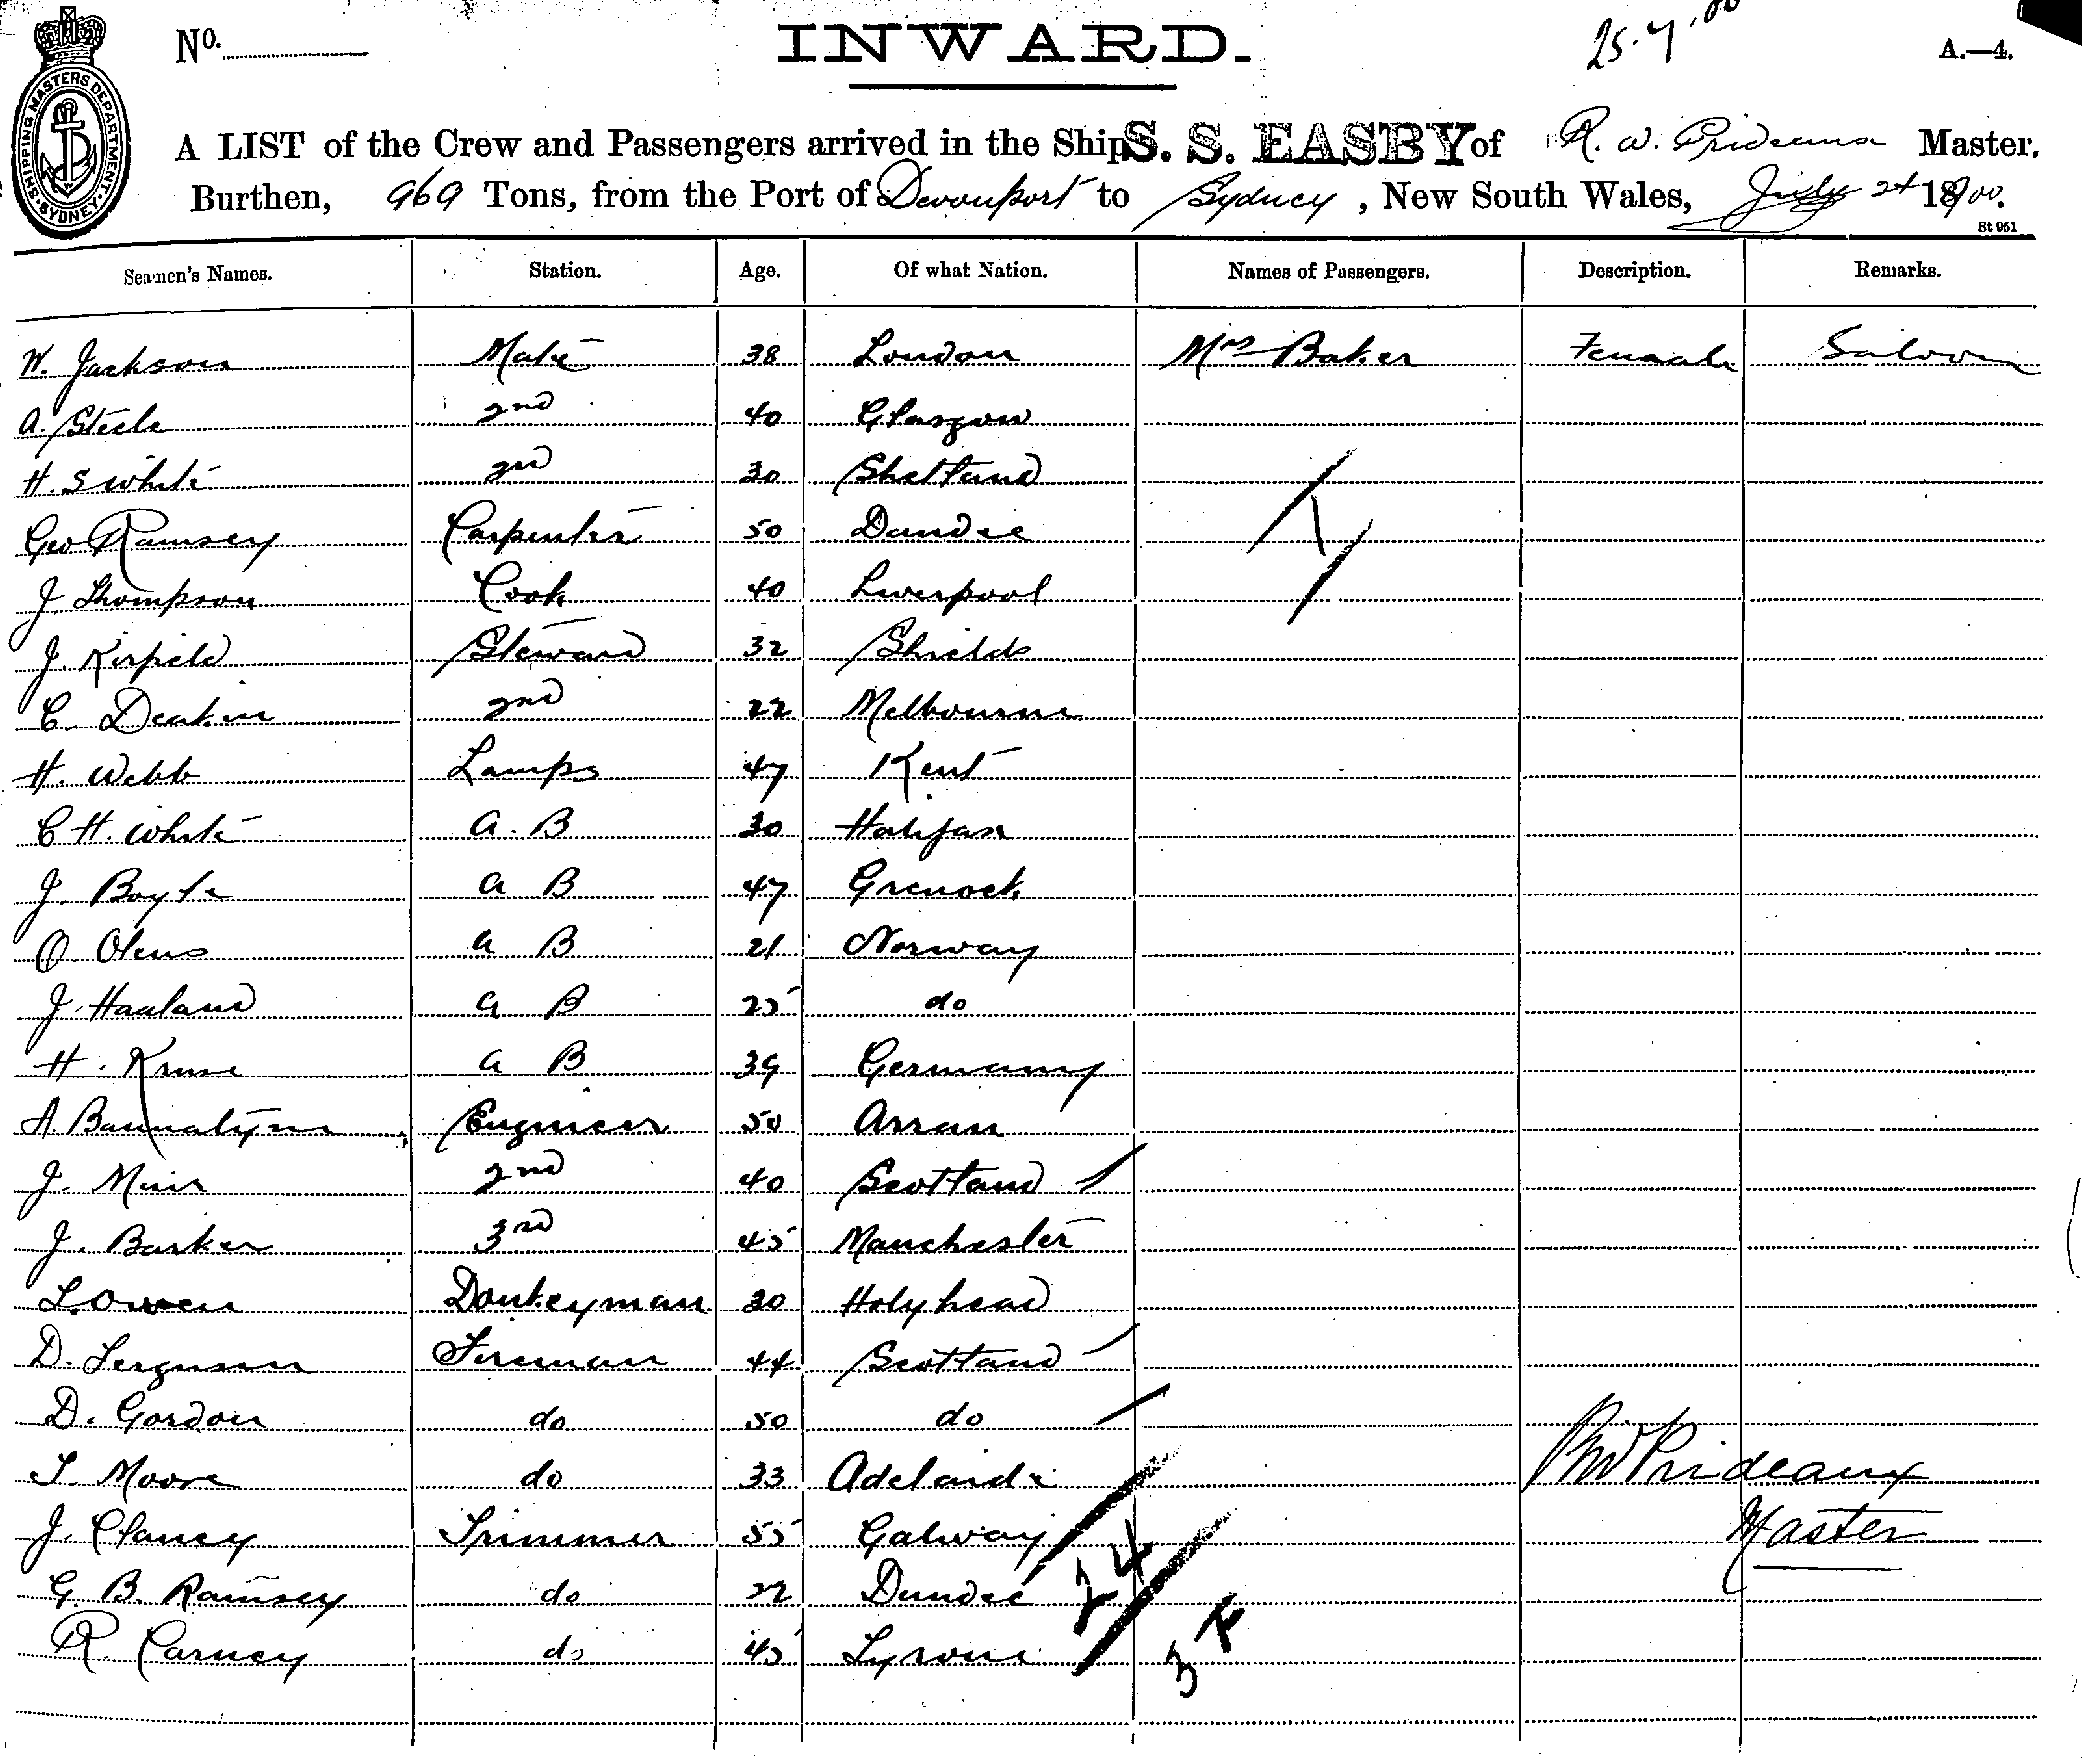 No. INWARD. 25.7.00 A.—4.
SHIPPING MASTERS DEPARTMENT. SYDNEY.
A LIST of the Crew and Passengers arrived in the Ship S. S. EASBY of R. W. Prideaux Master.
Burthen, 969 Tons, from the Port of Devonport to Sydney, New South Wales, July 24 1900.
St 951
Seamen's Names. Station. Age. Of what Nation. Names of Passengers. Description. Remarks.
W. Jackson Mate 38 London Mrs Baker Female Saloon
A. Steele 2nd 40 Glasgow
H. S White 3rd 30 Shetland
Geo Ramsey Carpenter 50 Dundee
1
J Thompson Cook 40 Liverpool
J. Kirfield Steward 32 Shields
C Deakin 2nd 22 Melbourne
H. Webb Lamps 47 Kent
C H. White A. B 30 Halifax
J. Boyle A B 47 Grenock
O Olens A B 21 Norway
J. Haaland A B 25 do
H. Kruse A B 39 Germany
A Bannatyne Engineer 50 Arran
J. Muir 2nd 40 Scotland
J. Barker 3rd 45 Manchester
L. Owen Donkeyman 30 Holyhead
D. Ferguson Fireman 44 Scotland
D. Gordon do 50 do
T. Moore do 33 Adelaide RW Prideaux
J. Clancy Trimmer 55 Galway Master
24
G. B. Ramsey do 22 Dundee
R. Carney do 45 Tyrone
3